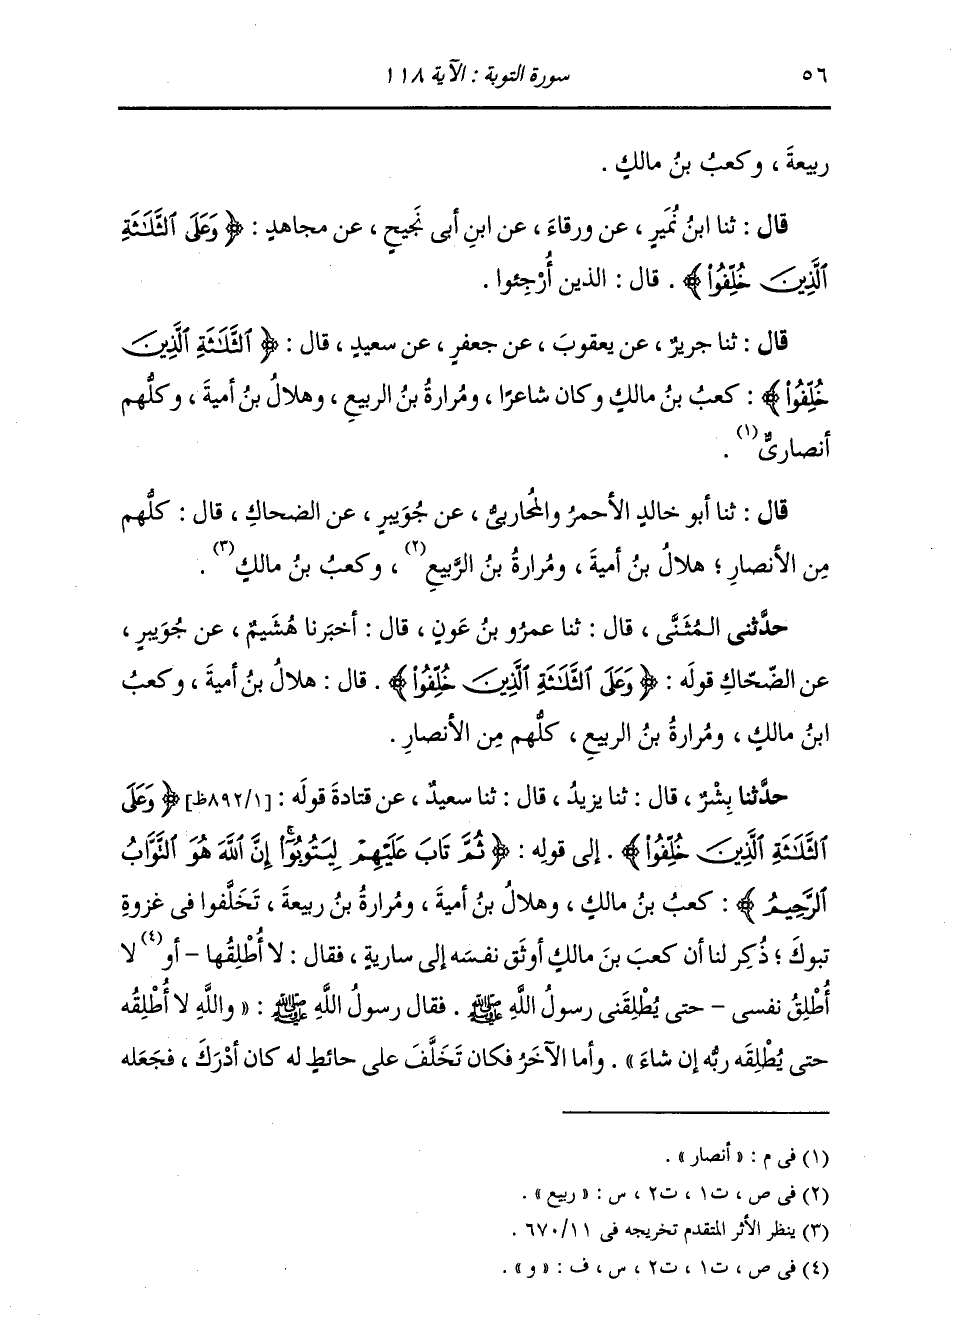 ٥٦ سورة التوبة : الآية ١١٨
ربيعةَ ، وكعبُ بنُ مالكٍ .
قال : ثنا ابنُ نُمَيرٍ ، عن ورقاءَ ، عن ابنِ أبى نَجيحٍ ، عن مجاهدٍ : ﴿ وَعَلَى ٱلثَّلَٰثَةِ
ٱلَّذِينَ خُلِّفُوا۟ ﴾ . قال : الذين أُرْجِئوا .
قال : ثنا جريرٌ ، عن يعقوبَ ، عن جعفرٍ ، عن سعيدٍ ، قال : ﴿ ٱلثَّلَٰثَةِ ٱلَّذِينَ
خُلِّفُوا۟ ﴾ : كعبُ بنُ مالكٍ وكان شاعرًا ، ومُرارةُ بنُ الربيعِ ، وهلالُ بنُ أميةَ ، وكلُّهم
أنصارىٌّ (١) .
قال : ثنا أبو خالدٍ الأحمرُ والمُحاربىُّ ، عن جُوَيبرٍ ، عن الضحاكِ ، قال : كلُّهم
مِن الأنصارِ ؛ هلالُ بنُ أميةَ ، ومُرارةُ بنُ الرَّبيعِ (٢) ، وكعبُ بنُ مالكٍ (٣) .
حدَّثنى المُثنَّى ، قال : ثنا عمرُو بنُ عَونٍ ، قال : أخبَرنا هُشَيمٌ ، عن جُوَيبرٍ ،
عن الضّحّاكِ قولَه : ﴿ وَعَلَى ٱلثَّلَٰثَةِ ٱلَّذِينَ خُلِّفُوا۟ ﴾ . قال : هلالُ بنُ أميةَ ، وكعبُ
ابنُ مالكٍ ، ومُرارةُ بنُ الربيعِ ، كلُّهم مِن الأنصارِ .
حدَّثنا بِشْرٌ ، قال : ثنا يزيدُ ، قال : ثنا سعيدٌ ، عن قتادةَ قولَه : [٨٩٢/١ظ] ﴿ وَعَلَى
ٱلثَّلَٰثَةِ ٱلَّذِينَ خُلِّفُوا۟ ﴾ . إلى قولِه : ﴿ ثُمَّ تَابَ عَلَيْهِمْ لِيَتُوبُوٓا۟ ۚ إِنَّ ٱللَّهَ هُوَ ٱلتَّوَّابُ
ٱلرَّحِيمُ ﴾ : كعبُ بنُ مالكٍ ، وهلالُ بنُ أميةَ ، ومُرارةُ بنُ ربيعةَ ، تَخلَّفوا فى غزوةِ
تبوكَ ؛ ذُكِر لنا أن كعبَ بنَ مالكٍ أوثَق نفسَه إلى ساريةٍ ، فقال : لا أُطْلِقُها - أو (٤) لا
أُطْلِقُ نفسى - حتى يُطْلِقَنى رسولُ اللَّهِ ﷺ . فقال رسولُ اللَّهِ ﷺ : « واللَّهِ لا أُطْلِقُه
حتى يُطْلِقَه ربُّه إن شاءَ » . وأما الآخَرُ فكان تَخَلَّفَ على حائطٍ له كان أدْرَكَ ، فجَعَله
(١) فى م : « أنصار » .
(٢) فى ص ، ت١ ، ت٢ ، س : « ربيع » .
(٣) ينظر الأثر المتقدم تخريجه فى ٦٧٠/١١ .
(٤) فى ص ، ت١ ، ت٢ ، س ، ف : « و » .